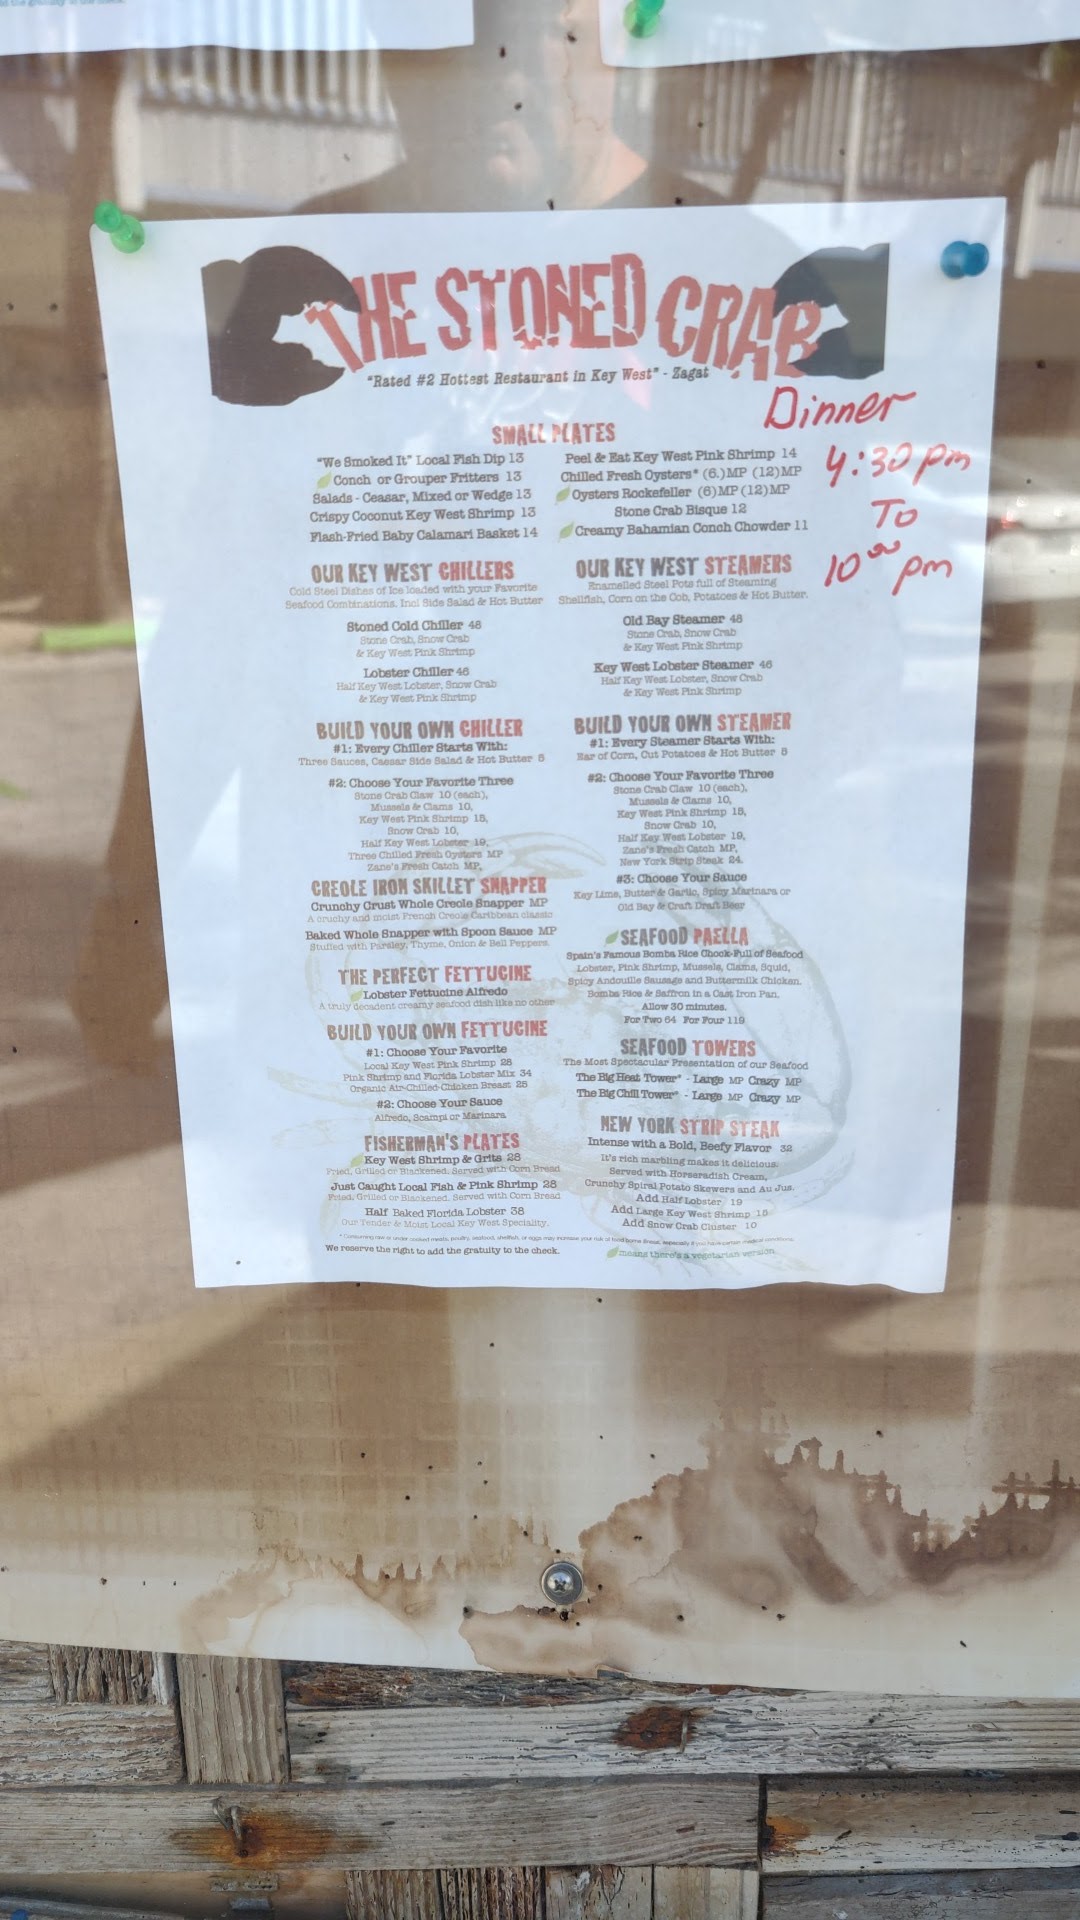 THE STONED CRAB
"Rated #2 Hottest Restaurant in Key West" - Zagat
Dinner
4:30 pm
To
10 00 pm
SMALL PLATES
"We Smoked It" Local Fish Dip 13
Conch or Grouper Fritters 13
Salads - Ceasar, Mixed or Wedge 13
Crispy Coconut Key West Shrimp 13
Flash-Fried Baby Calamari Basket 14
Peel & Eat Key West Pink Shrimp 14
Chilled Fresh Oysters* (6.)MP (12)MP
Oysters Rockefeller (6)MP (12)MP
Stone Crab Bisque 12
Creamy Bahamian Conch Chowder 11
OUR KEY WEST CHILLERS
Cold Steel Dishes of Ice loaded with your Favorite
Seafood Combinations. Incl Side Salad & Hot Butter
Stoned Cold Chiller 48
Stone Crab, Snow Crab
& Key West Pink Shrimp
Lobster Chiller 46
Half Key West Lobster, Snow Crab
& Key West Pink Shrimp
BUILD YOUR OWN CHILLER
#1: Every Chiller Starts With:
Three Sauces, Caesar Side Salad & Hot Butter 5
#2: Choose Your Favorite Three
Stone Crab Claw 10 (each),
Mussels & Clams 10,
Key West Pink Shrimp 15,
Snow Crab 10,
Half Key West Lobster 19,
Three Chilled Fresh Oysters MP
Zane's Fresh Catch MP,
CREOLE IRON SKILLET SNAPPER
Crunchy Crust Whole Creole Snapper MP
A cruchy and moist French Creole Caribbean classic
Baked Whole Snapper with Spoon Sauce MP
Stuffed with Parsley, Thyme, Onion & Bell Peppers.
THE PERFECT FETTUCINE
Lobster Fettucine Alfredo
A truly decadent creamy seafood dish like no other
BUILD YOUR OWN FETTUCINE
#1: Choose Your Favorite
Local Key West Pink Shrimp 28
Pink Shrimp and Florida Lobster Mix 34
Organic Air-Chilled-Chicken Breast 25
#2: Choose Your Sauce
Alfredo, Scampi or Marinara
FISHERMAN'S PLATES
Key West Shrimp & Grits 28
Fried, Grilled or Blackened. Served with Corn Bread
Just Caught Local Fish & Pink Shrimp 28
Fried, Grilled or Blackened. Served with Corn Bread
Half Baked Florida Lobster 38
Our Tender & Moist Local Key West Speciality.
OUR KEY WEST STEAMERS
Enamelled Steel Pots full of Steaming
Shellfish, Corn on the Cob, Potatoes & Hot Butter.
Old Bay Steamer 48
Stone Crab, Snow Crab
& Key West Pink Shrimp
Key West Lobster Steamer 46
Half Key West Lobster, Snow Crab
& Key West Pink Shrimp
BUILD YOUR OWN STEAMER
#1: Every Steamer Starts With:
Ear of Corn, Cut Potatoes & Hot Butter 5
#2: Choose Your Favorite Three
Stone Crab Claw 10 (each),
Mussels & Clams 10,
Key West Pink Shrimp 15,
Snow Crab 10,
Half Key West Lobster 19,
Zane's Fresh Catch MP,
New York Strip Steak 24.
#3: Choose Your Sauce
Key Lime, Butter & Garlic, Spicy Marinara or
Old Bay & Craft Draft Beer
SEAFOOD PAELLA
Spain's Famous Bomba Rice Chock-Full of Seafood
Lobster, Pink Shrimp, Mussels, Clams, Squid,
Spicy Andouille Sausage and Buttermilk Chicken.
Bomba Rice & Saffron in a Cast Iron Pan.
Allow 30 minutes.
For Two 64 For Four 119
SEAFOOD TOWERS
The Most Spectacular Presentation of our Seafood
The Big Heat Tower* - Large MP Crazy MP
The Big Chill Tower* - Large MP Crazy MP
NEW YORK STRIP STEAK
Intense with a Bold, Beefy Flavor 32
It's rich marbling makes it delicious.
Served with Horseradish Cream,
Crunchy Spiral Potato Skewers and Au Jus.
Add Half Lobster 19
Add Large Key West Shrimp 15
Add Snow Crab Cluster 10
* Consuming raw or under cooked meats, poultry, seafood, shellfish, or eggs may increase your risk of food borne illness, especially if you have certain medical conditions.
We reserve the right to add the gratuity to the check.
means there's a vegetarian version